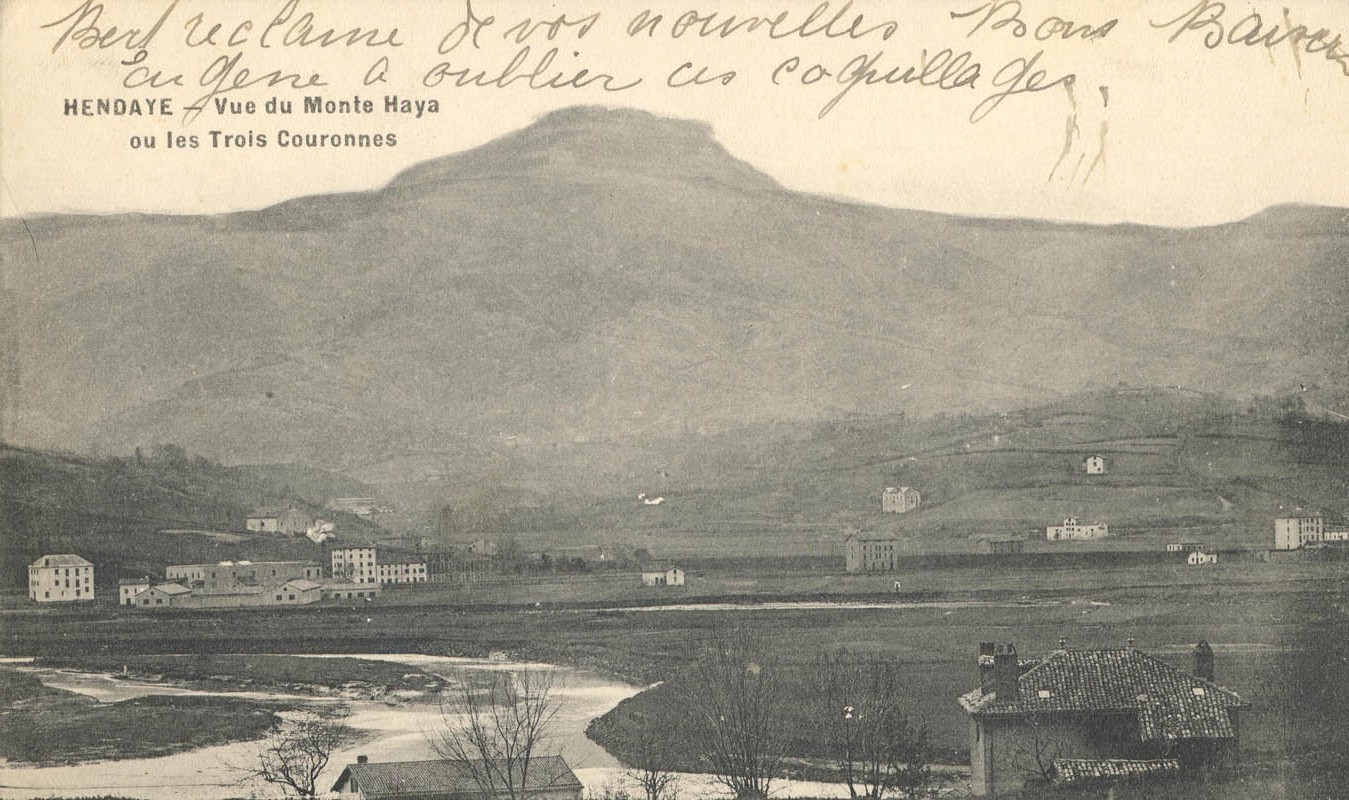 Bert reclame de vos nouvelles Bons Baisers
Eugene a oublier ces coquillages
HENDAYE - Vue du Monte Haya
ou les Trois Couronnes